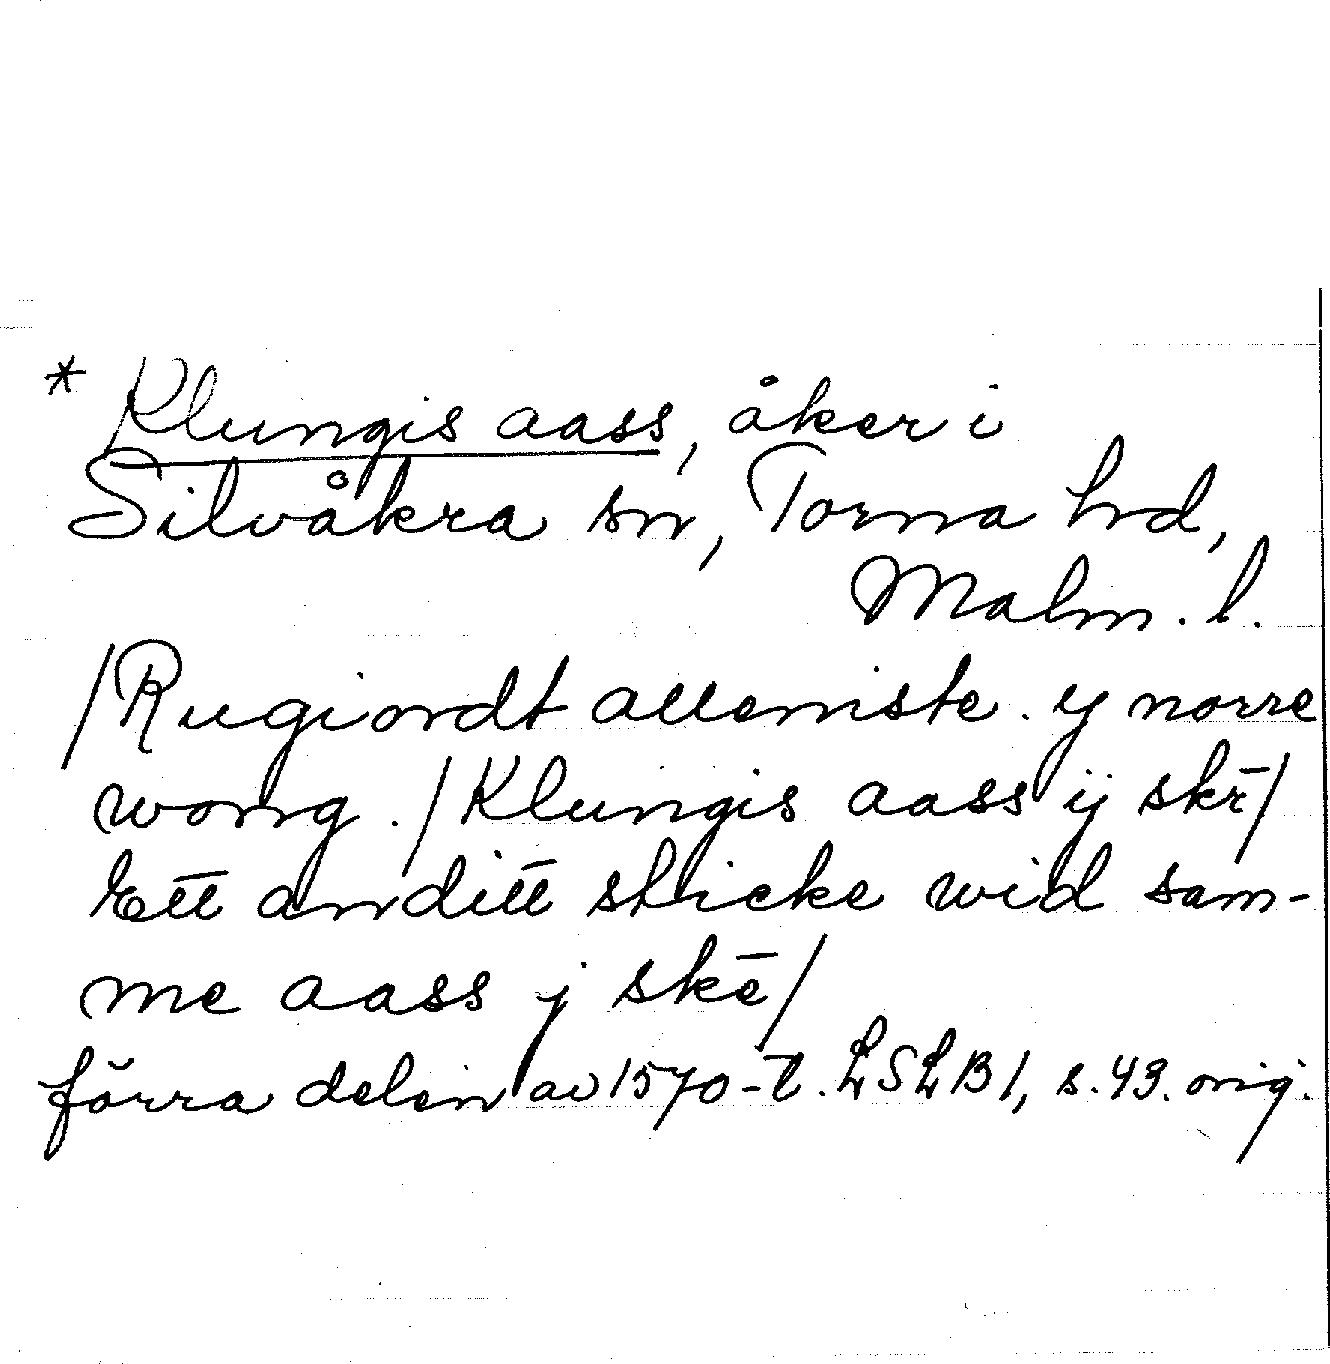 * Klungis aass, åker i
Silvåkra sn, Torna hd,
Malm. l.
/Rugiordt allemiste. y norre
wong. / Klungis aass ij skr̄/
Ett anditt sticke wid sam-
me aass j skē/
förra delen av 1570-t. LSLB I, s. 43. orig.